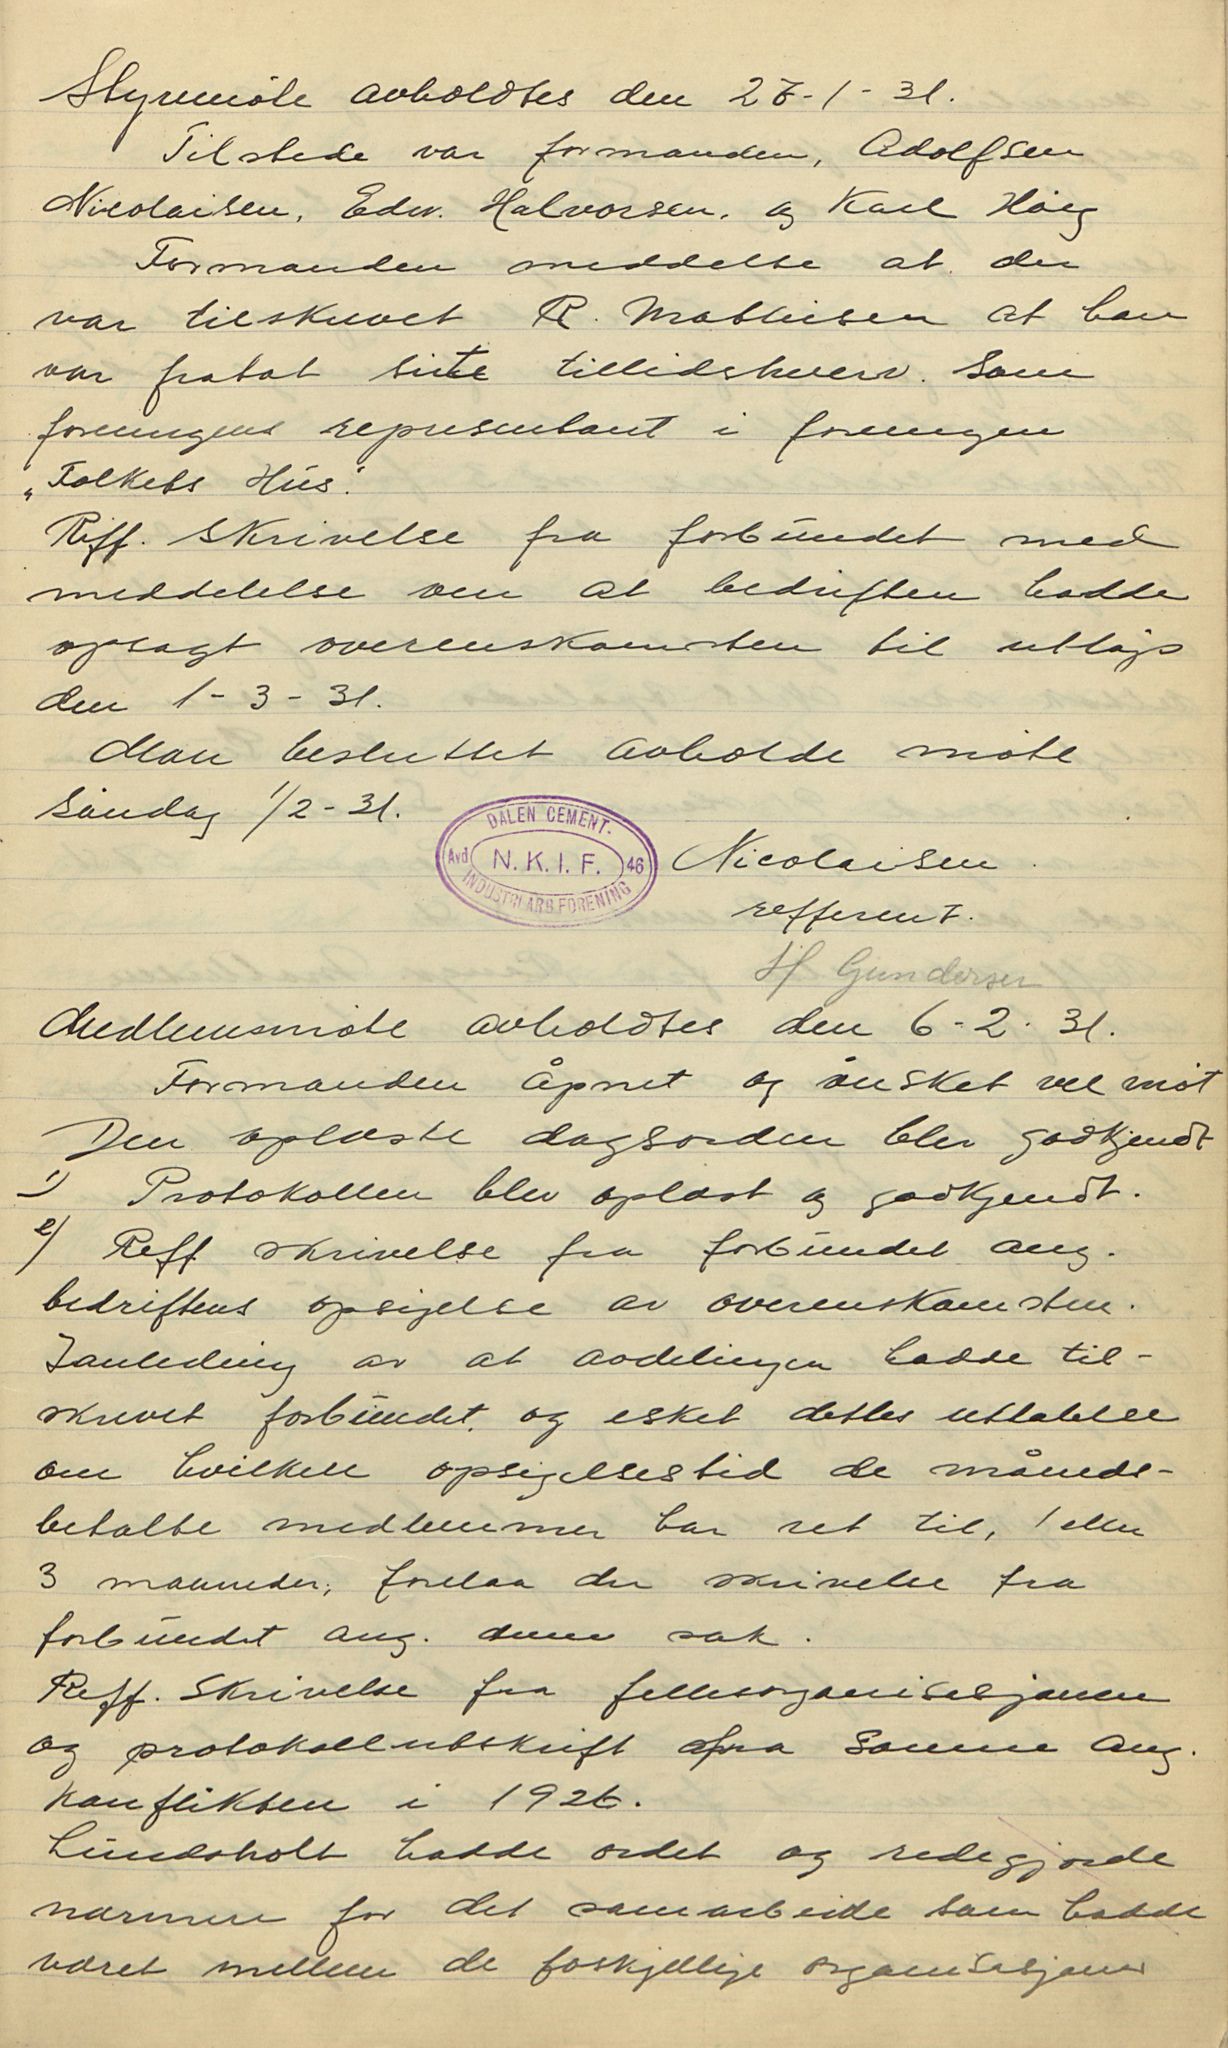 Styremöte avholdtes den 27-1-31.
Tilstede var formanden, Adolfsen
Nicolaisen, Edv. Halvorsen, og Karl Höig
Formanden meddelte at der
var tilskrevet R. Mathisen at han
var fratat sitte tillidshverv. Som
foreningens representant i foreningen
„Folkets Hus".
Reff. Skrivelse fra forbundet med
meddelelse om at bedriften hadde
opsagt overenskomsten til utløp
den 1-3-31.
Man besluttet avholde möte
Söndag 1/2-31.
DALEN CEMENT.
Avd N.K.I.F. 46
INDUSTRI ARB. FORENING
Nicolaisen
refferent.
H Gundersen
Medlemsmöte avholdtes den 6-2-31.
Formanden åpnet og önsket vel möt
Den oplæste dagsorden blev godkjendt
1) Protokollen blev oplæst og godkjendt.
2) Reff skrivelse fra forbundet ang.
bedriftens opsigelse av overenskomsten.
I anledning av at avdelingen hadde til-
skrevet forbundet, og esket dettes uttalelse
om hvilken opsigelsestid de måneds-
betalte medlemmer har ret til, 1 eller
3 maaneder, forelaa der skrivelse fra
forbundet ang. denne sak.
Reff. Skrivelse fra fellesorganisasjonen
og protokollutskrift fra Samme ang.
konflikten i 1926.
Lundsholt hadde ordet og redegjorde
nærmere for det samarbeide som hadde
været mellem de forskjellige organisasjoner